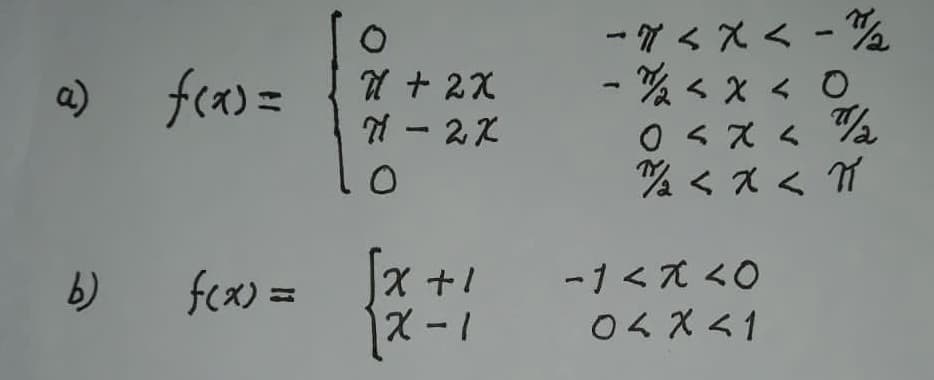 a) f(x) = { 0    -π < x < -π/2
π + 2x    -π/2 < x < 0
π - 2x    0 < x < π/2
0    π/2 < x < π
b) f(x) = { x + 1    -1 < x < 0
x - 1    0 < x < 1